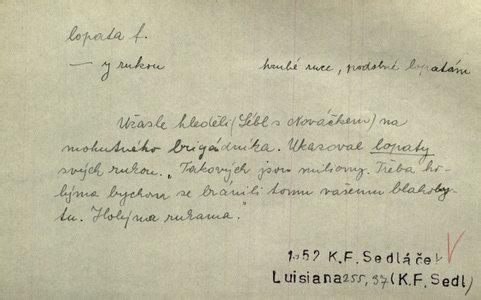 lopata f.
— y rukou hrubé ruce, podobné lopatám
Užasle hleděli (Lébl s Nováčkem) na
mohutného brigádníka. Ukazoval lopaty
svých rukou. „Takových jsou miliony. Třeba ho-
lýma bychom se bránili tomu vašemu blahoby-
tu. Holýma rukama."
1952 K.F. Sedláček
Luisiana 255, 97 (K.F. Sedl)